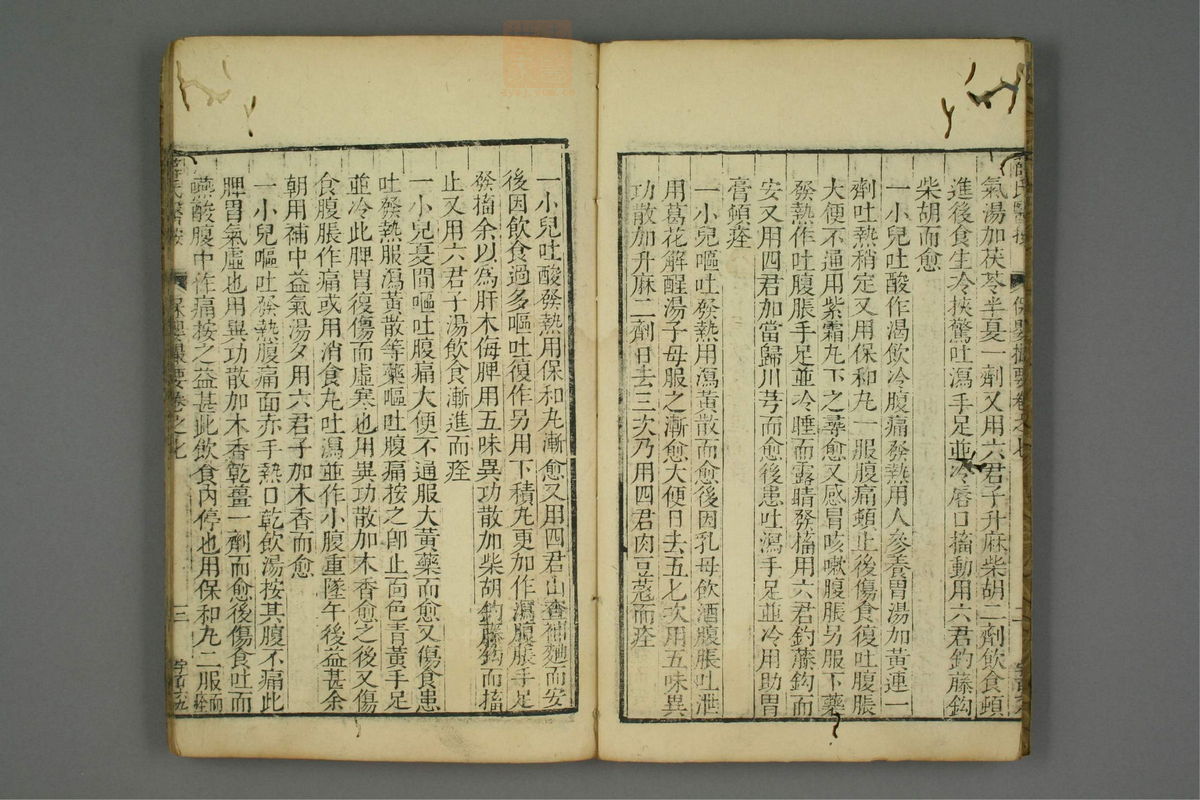 氣湯加茯苓半夏一劑又用六君子升麻柴胡二劑飲食頓
進後食生冷挾驚吐瀉手足並冷唇口搐動用六君釣藤鈎
柴胡而愈
一小兒吐酸作渴飲冷腹痛發熱用人參養胃湯加黃連一
劑吐熱稍定又用保和丸一服腹痛頓止後傷食復吐腹脹
大便不通用紫霜丸下之尋愈又感冒咳嗽腹脹另服下藥
發熱作吐腹脹手足並冷睡而露睛發搐用六君釣藤鈎而
安又用四君加當歸川芎而愈後患吐瀉手足並冷用助胃
膏頓痊
一小兒嘔吐發熱用瀉黃散而愈後因乳母飲酒腹脹吐泄
用葛花解酲湯子母服之漸愈大便日去五七次用五味異
功散加升麻二劑日去三次乃用四君肉豆蔻而痊
一小兒吐酸發熱用保和丸漸愈又用四君山查神麯而安
後因飲食過多嘔吐復作另用下積丸更加作瀉腹脹手足
發搐余以為肝木侮脾用五味異功散加柴胡釣藤鈎而搐
止又用六君子湯飲食漸進而痊
一小兒憂間嘔吐腹痛大便不通服大黃藥而愈又傷食患
吐發熱服瀉黃散等藥嘔吐腹痛按之卽止面色青黃手足
並冷此脾胃復傷而虛寒也用異功散加木香愈之後又傷
食腹脹作痛或用消食丸吐瀉並作小腹重墜午後益甚余
朝用補中益氣湯夕用六君子加木香而愈
一小兒嘔吐發熱腹痛面赤手熱口乾飲湯按其腹不痛此
脾胃氣虛也用異功散加木香乾薑一劑而愈後傷食吐而
嚥酸腹中作痛按之益甚此飲食內停也用保和丸二服而痊
薛氏醫按
保嬰撮要卷之七
三